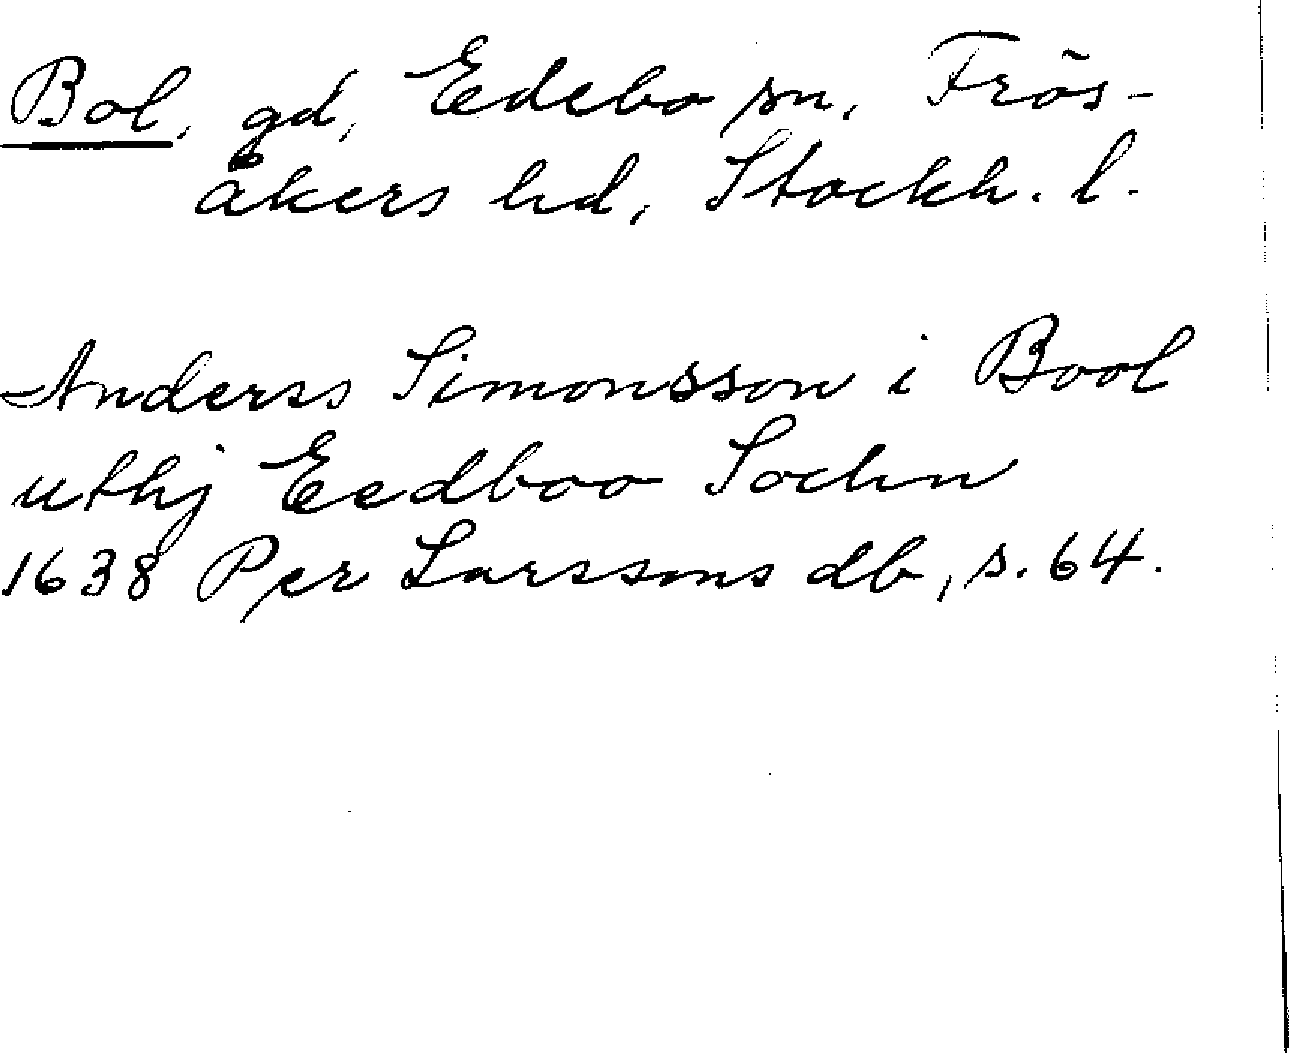 Bol, gd, Edebo sn, Frös-
åkers hd, Stockh. l.
Anderss Simonsson i Bool
uthj Eedboo Sochn
1638 Per Larssons db, s. 64.